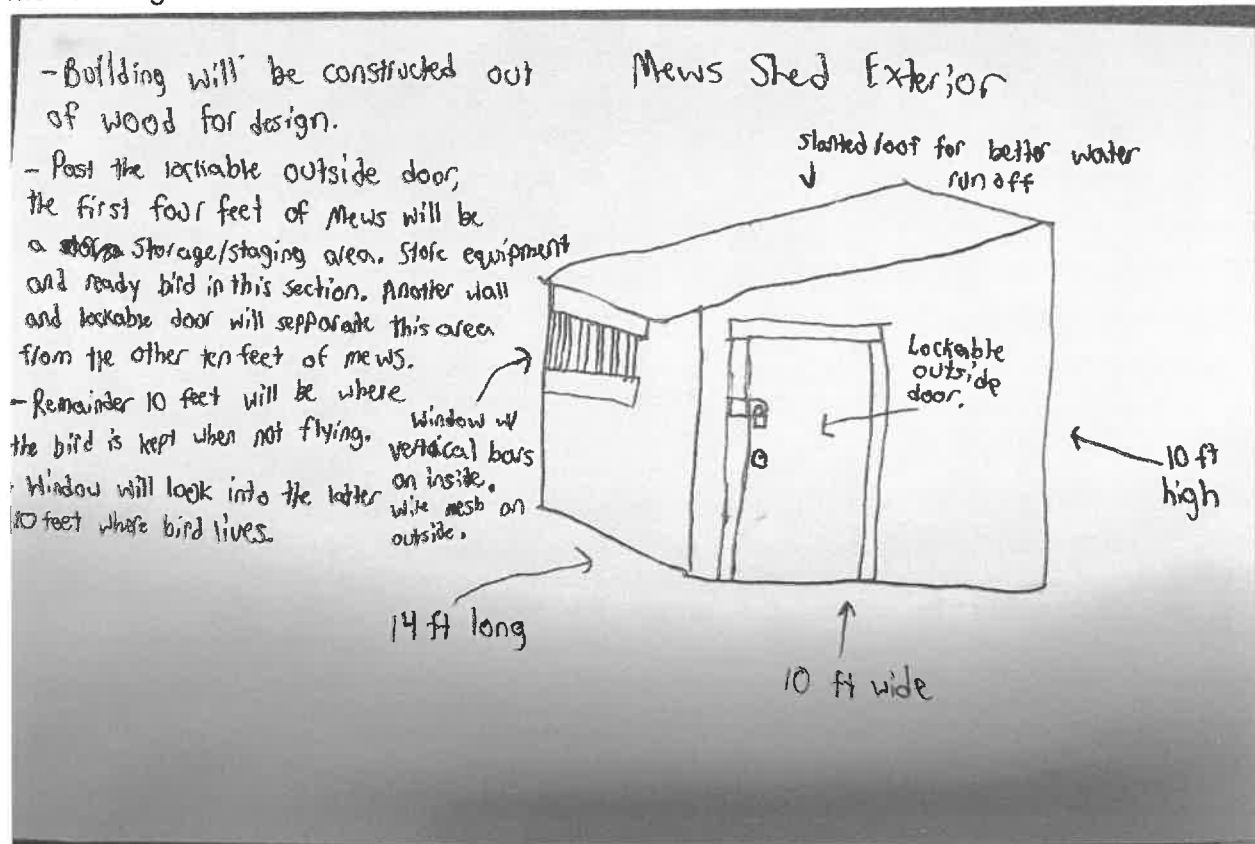 Mews Shed Exterior
- Building will be constructed out
of wood for design.
- Past the lockable outside door,
the first four feet of Mews will be
a storage/staging area. Store equipment
and ready bird in this section. Another wall
and lockable door will sepparate this area
from the other ten feet of mews.
- Remainder 10 feet will be where
the bird is kept when not flying.
- Window will look into the latter
10 feet where bird lives.
slanted roof for better water
run off
Window w/
vertical bars
on inside.
wire mesh on
outside.
Lockable
outside
door.
10 ft
high
14 ft long
10 ft wide